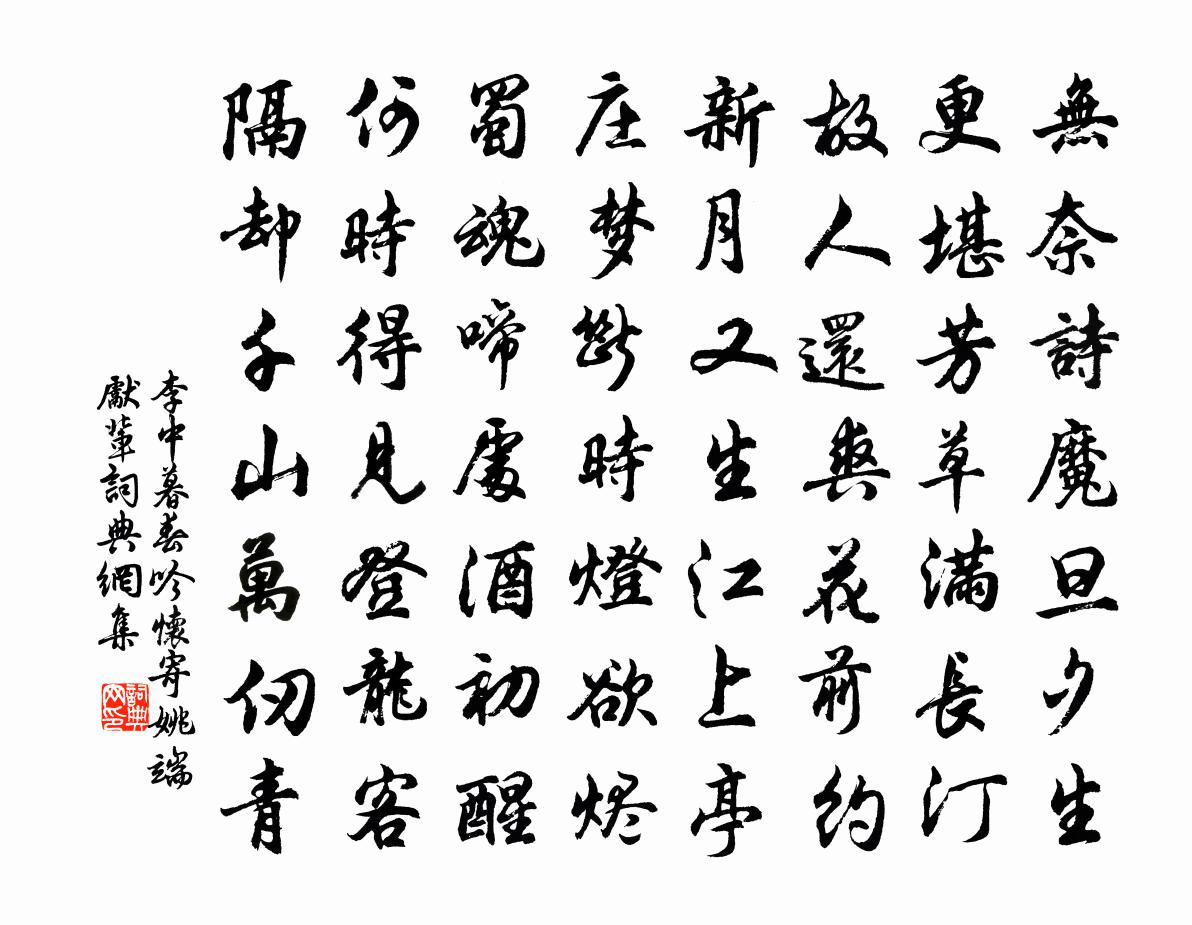 無奈詩魔旦夕生
更堪芳草满長汀
故人還爽花前約
新月又生江上亭
庄梦斷時燈欲烬
蜀魂啼處酒初醒
何時得見登龍客
隔却千山萬仞青
李中暮春吟懷寄姚端
獻輩詞典網集
詞典
网印